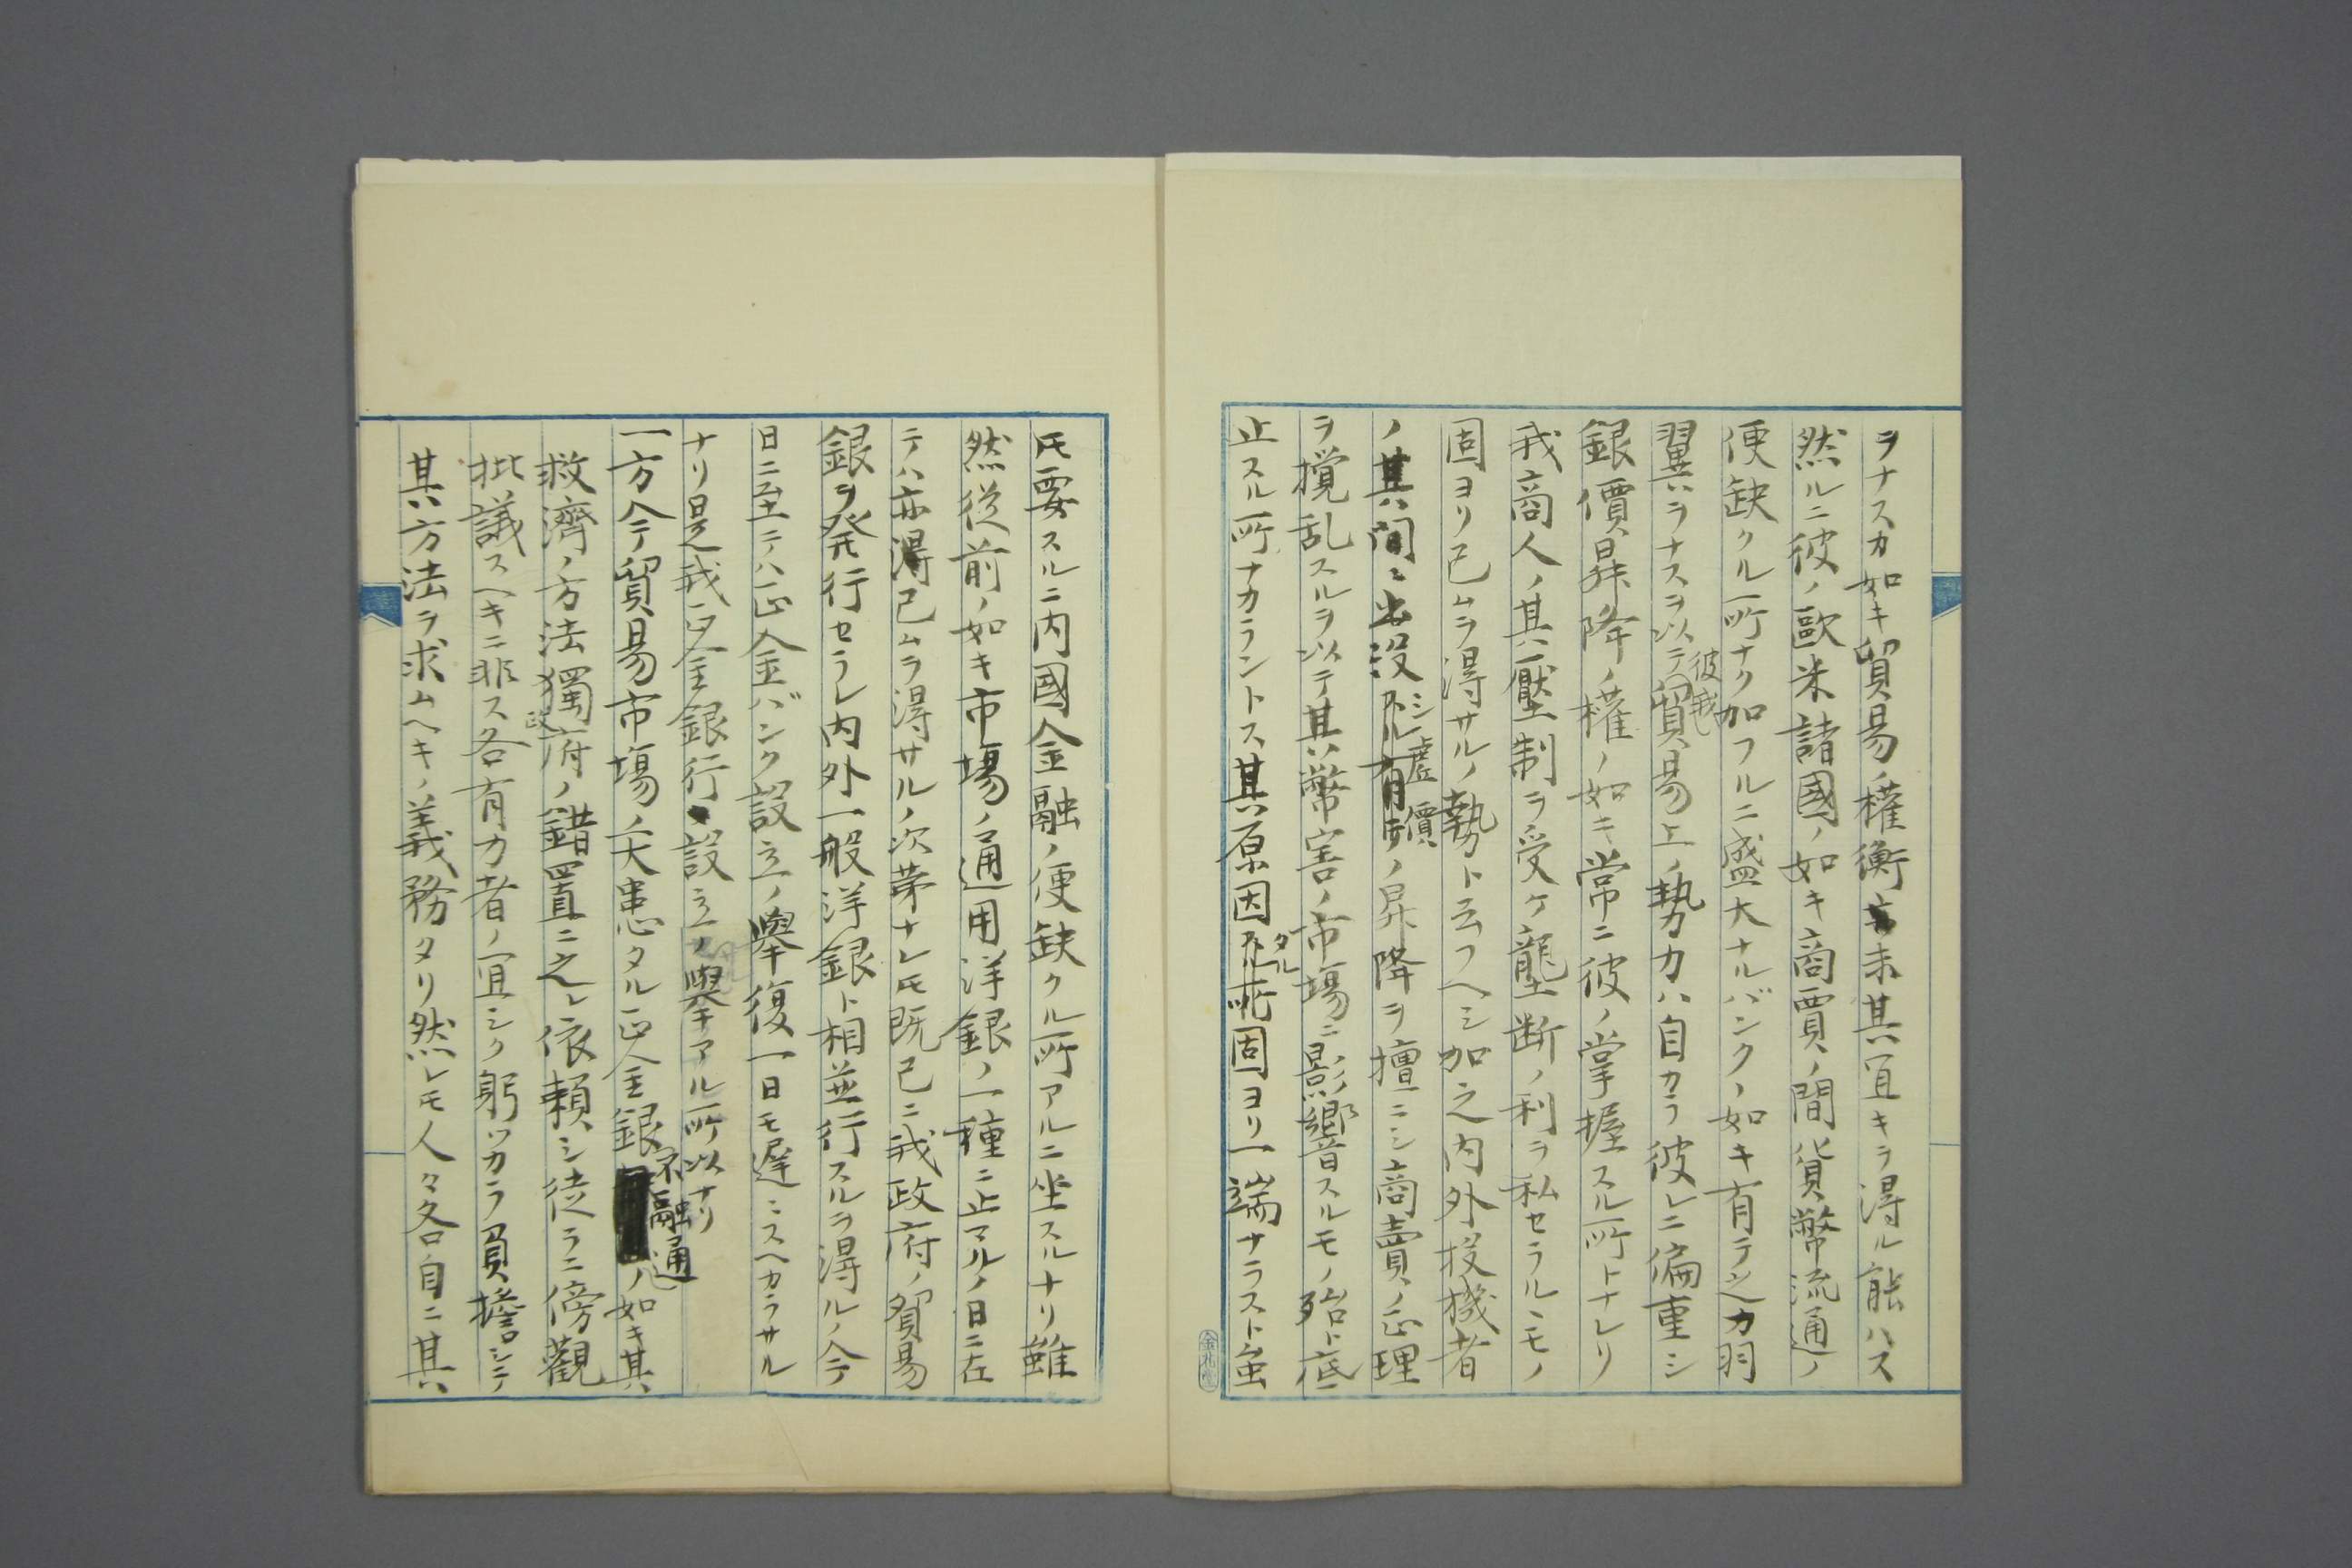 ヲナスカ如キ貿易ノ權衡未其宜キヲ得ル能ハス
然ルニ彼ノ歐米諸國ノ如キ商賈ノ間貨幣流通ノ
便缺クル所ナク加フルニ盛大ナルバンクノ如キ有テ之カ羽
翼ヲナスヲ以テ彼我貿易上ノ勢力ハ自カラ彼レニ偏重シ
銀價昇降ノ權ノ如キ常ニ彼ノ掌握スル所トナレリ
我商人ノ其壓制ヲ受ケ壟断ノ利ヲ私セラルヽモノ
固ヨリ已ムヲ得サルノ勢ト云フヘシ加之内外投機者
ノ其間ニ出没シ虚價ノ昇降ヲ擅ニシ商賣ノ正理
ヲ攪乱スルヲ以テ其幣害ノ市場ニ影響スルモノ殆ト底
止スル所ナカラントス其原因タル固ヨリ一端ナラスト虽
氏要スルニ内國金融ノ便缺クル所アルニ坐スルナリ雖
然從前ノ如キ市場ノ通用洋銀ノ一種ニ止マルノ日ニ在
テハ亦得已ムヲ得サルノ次第ナレ氏既已ニ我政府ノ貿易
銀ヲ発行セラレ内外一般洋銀ト相並行スルヲ得ルノ今
日ニ至テハ正金バンク設立ノ舉復一日モ遅ヽスヘカラサル
ナリ是我正金銀行設立ノ舉アル所以ナリ
一方今貿易市場ノ大患タル正金銀不融通ノ如キ其
救濟ノ方法獨政府ノ錯置ニ之レ依頼シ徒ラニ傍觀
批議スヘキニ非ス各有力者ノ宜シク躬ツカラ負擔シテ
其方法ヲ求ムヘキノ義務タリ然レモ人々各自ニ其